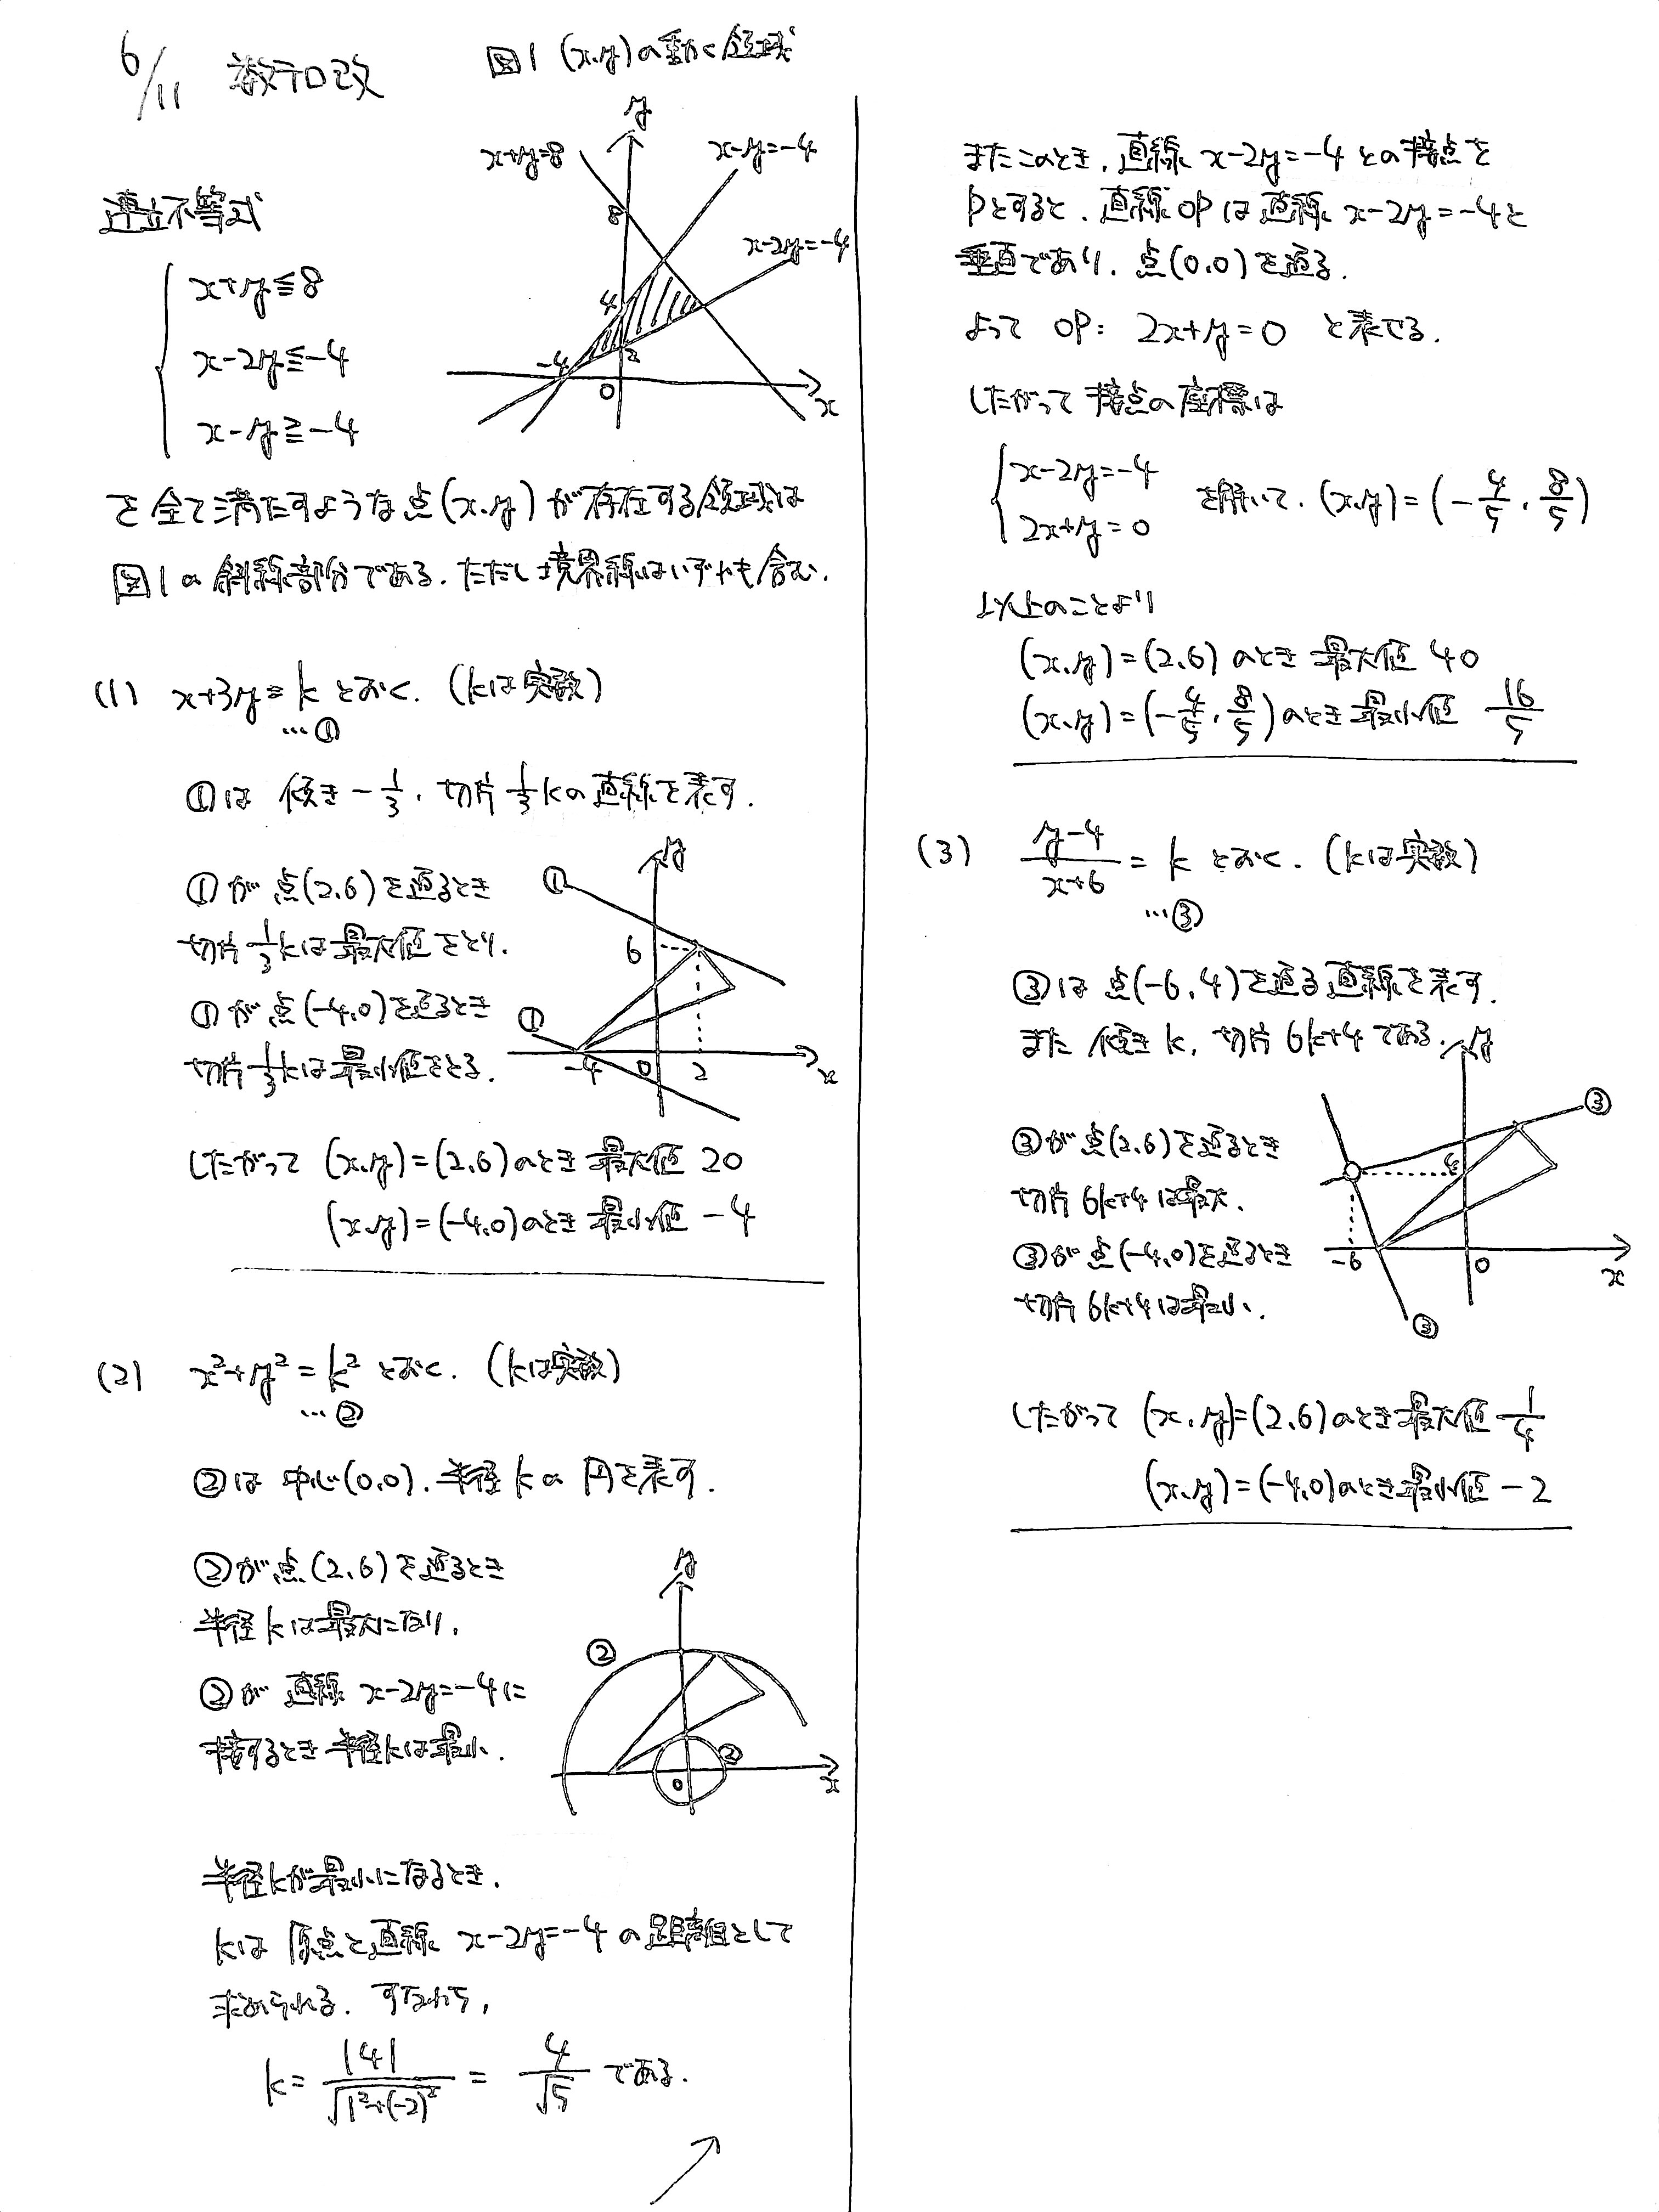 6/11 数テロ改
図1 (x,y)の動く領域
x+y=8
x-y=-4
x-2y=-4
y
8
4
2
-4
0
x
連立不等式
x+y≦8
x-2y≦-4
x-y≧-4
を全て満たすような点(x,y)が存在する領域は
図1の斜線部分である.ただし境界線はいずれも含む.
(1) x+3y=k とおく.(kは実数)
…①
①は 傾き-1/3,切片1/3kの直線を表す.
①が点(2,6)を通るとき
切片1/3kは最大値をとり.
①が点(-4,0)を通るとき
切片1/3kは最小値をとる.
①
y
6
①
-4
0
2
x
したがって (x,y)=(2,6)のとき 最大値 20
(x,y)=(-4,0)のとき 最小値 -4
(2) x²+y²=k² とおく.(kは実数)
…②
②は 中心(0,0),半径kの円を表す.
②が点(2,6)を通るとき
半径kは最大になり,
②が 直線 x-2y=-4に
接するとき半径kは最小.
y
②
②
0
x
半径kが最小になるとき,
kは 原点と直線 x-2y=-4 の距離として
求められる.すなわち,
k=|4|/√(1²+(-2)²) = 4/√5 である.
またこのとき,直線 x-2y=-4 との接点を
Pとすると,直線OPは直線 x-2y=-4と
垂直であり,点(0,0)を通る.
よって OP: 2x+y=0 と表せる.
したがって 接点の座標は
x-2y=-4
2x+y=0
を解いて,(x,y)=(-4/5,8/5)
以上のことより
(x,y)=(2,6)のとき 最大値 40
(x,y)=(-4/5,8/5)のとき 最小値 16/5
(3) (y-4)/(x+6) = k とおく.(kは実数)
…③
③は 点(-6,4)を通る直線を表す.
また 傾きk,切片6k+4である.
③が点(2,6)を通るとき
切片6k+4は最大.
③が点(-4,0)を通るとき
切片6k+4は最小.
y
③
4
-6
0
x
③
したがって (x,y)=(2,6)のとき最大値 1/4
(x,y)=(-4,0)のとき最小値 -2